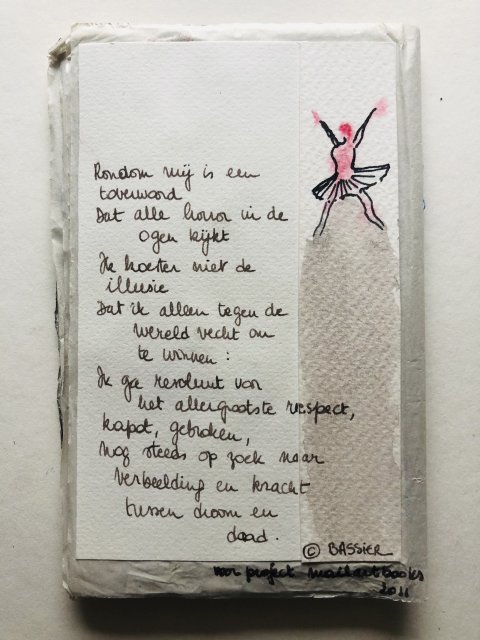 Rondom mij is een
toverwoord
Dat alle horror in de
ogen kijkt
Ik koester niet de
illusie
Dat ik alleen tegen de
wereld vecht om
te winnen :
Ik ga resoluut voor
het allergrootste respect,
kapot, gebroken,
nog steeds op zoek naar
verbeelding en kracht
tussen droom en
daad.
© BASSIER
voor project mailartbooks
2011